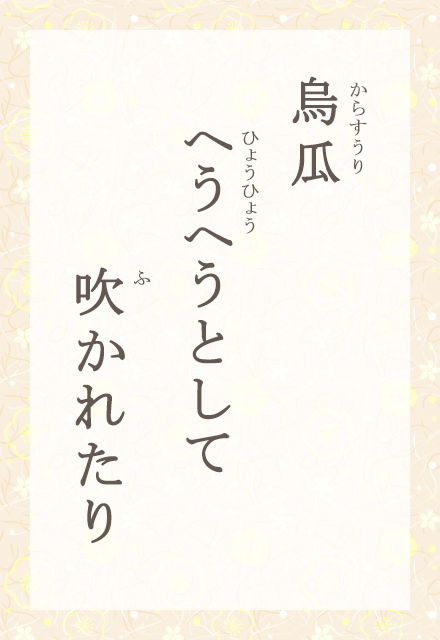 からすうり
烏瓜
ひょうひょう
へうへうとして
ふ
吹かれたり